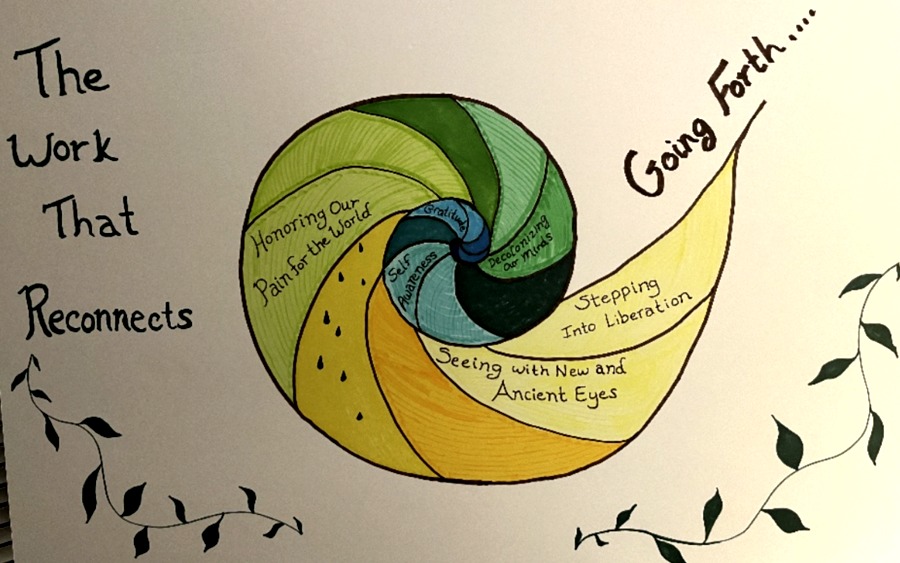 The
Work
That
Reconnects
Going Forth....
Gratitude
Self
Awareness
Decolonizing
Our Minds
Honoring Our
Pain for the World
Seeing with New and
Ancient Eyes
Stepping
Into Liberation